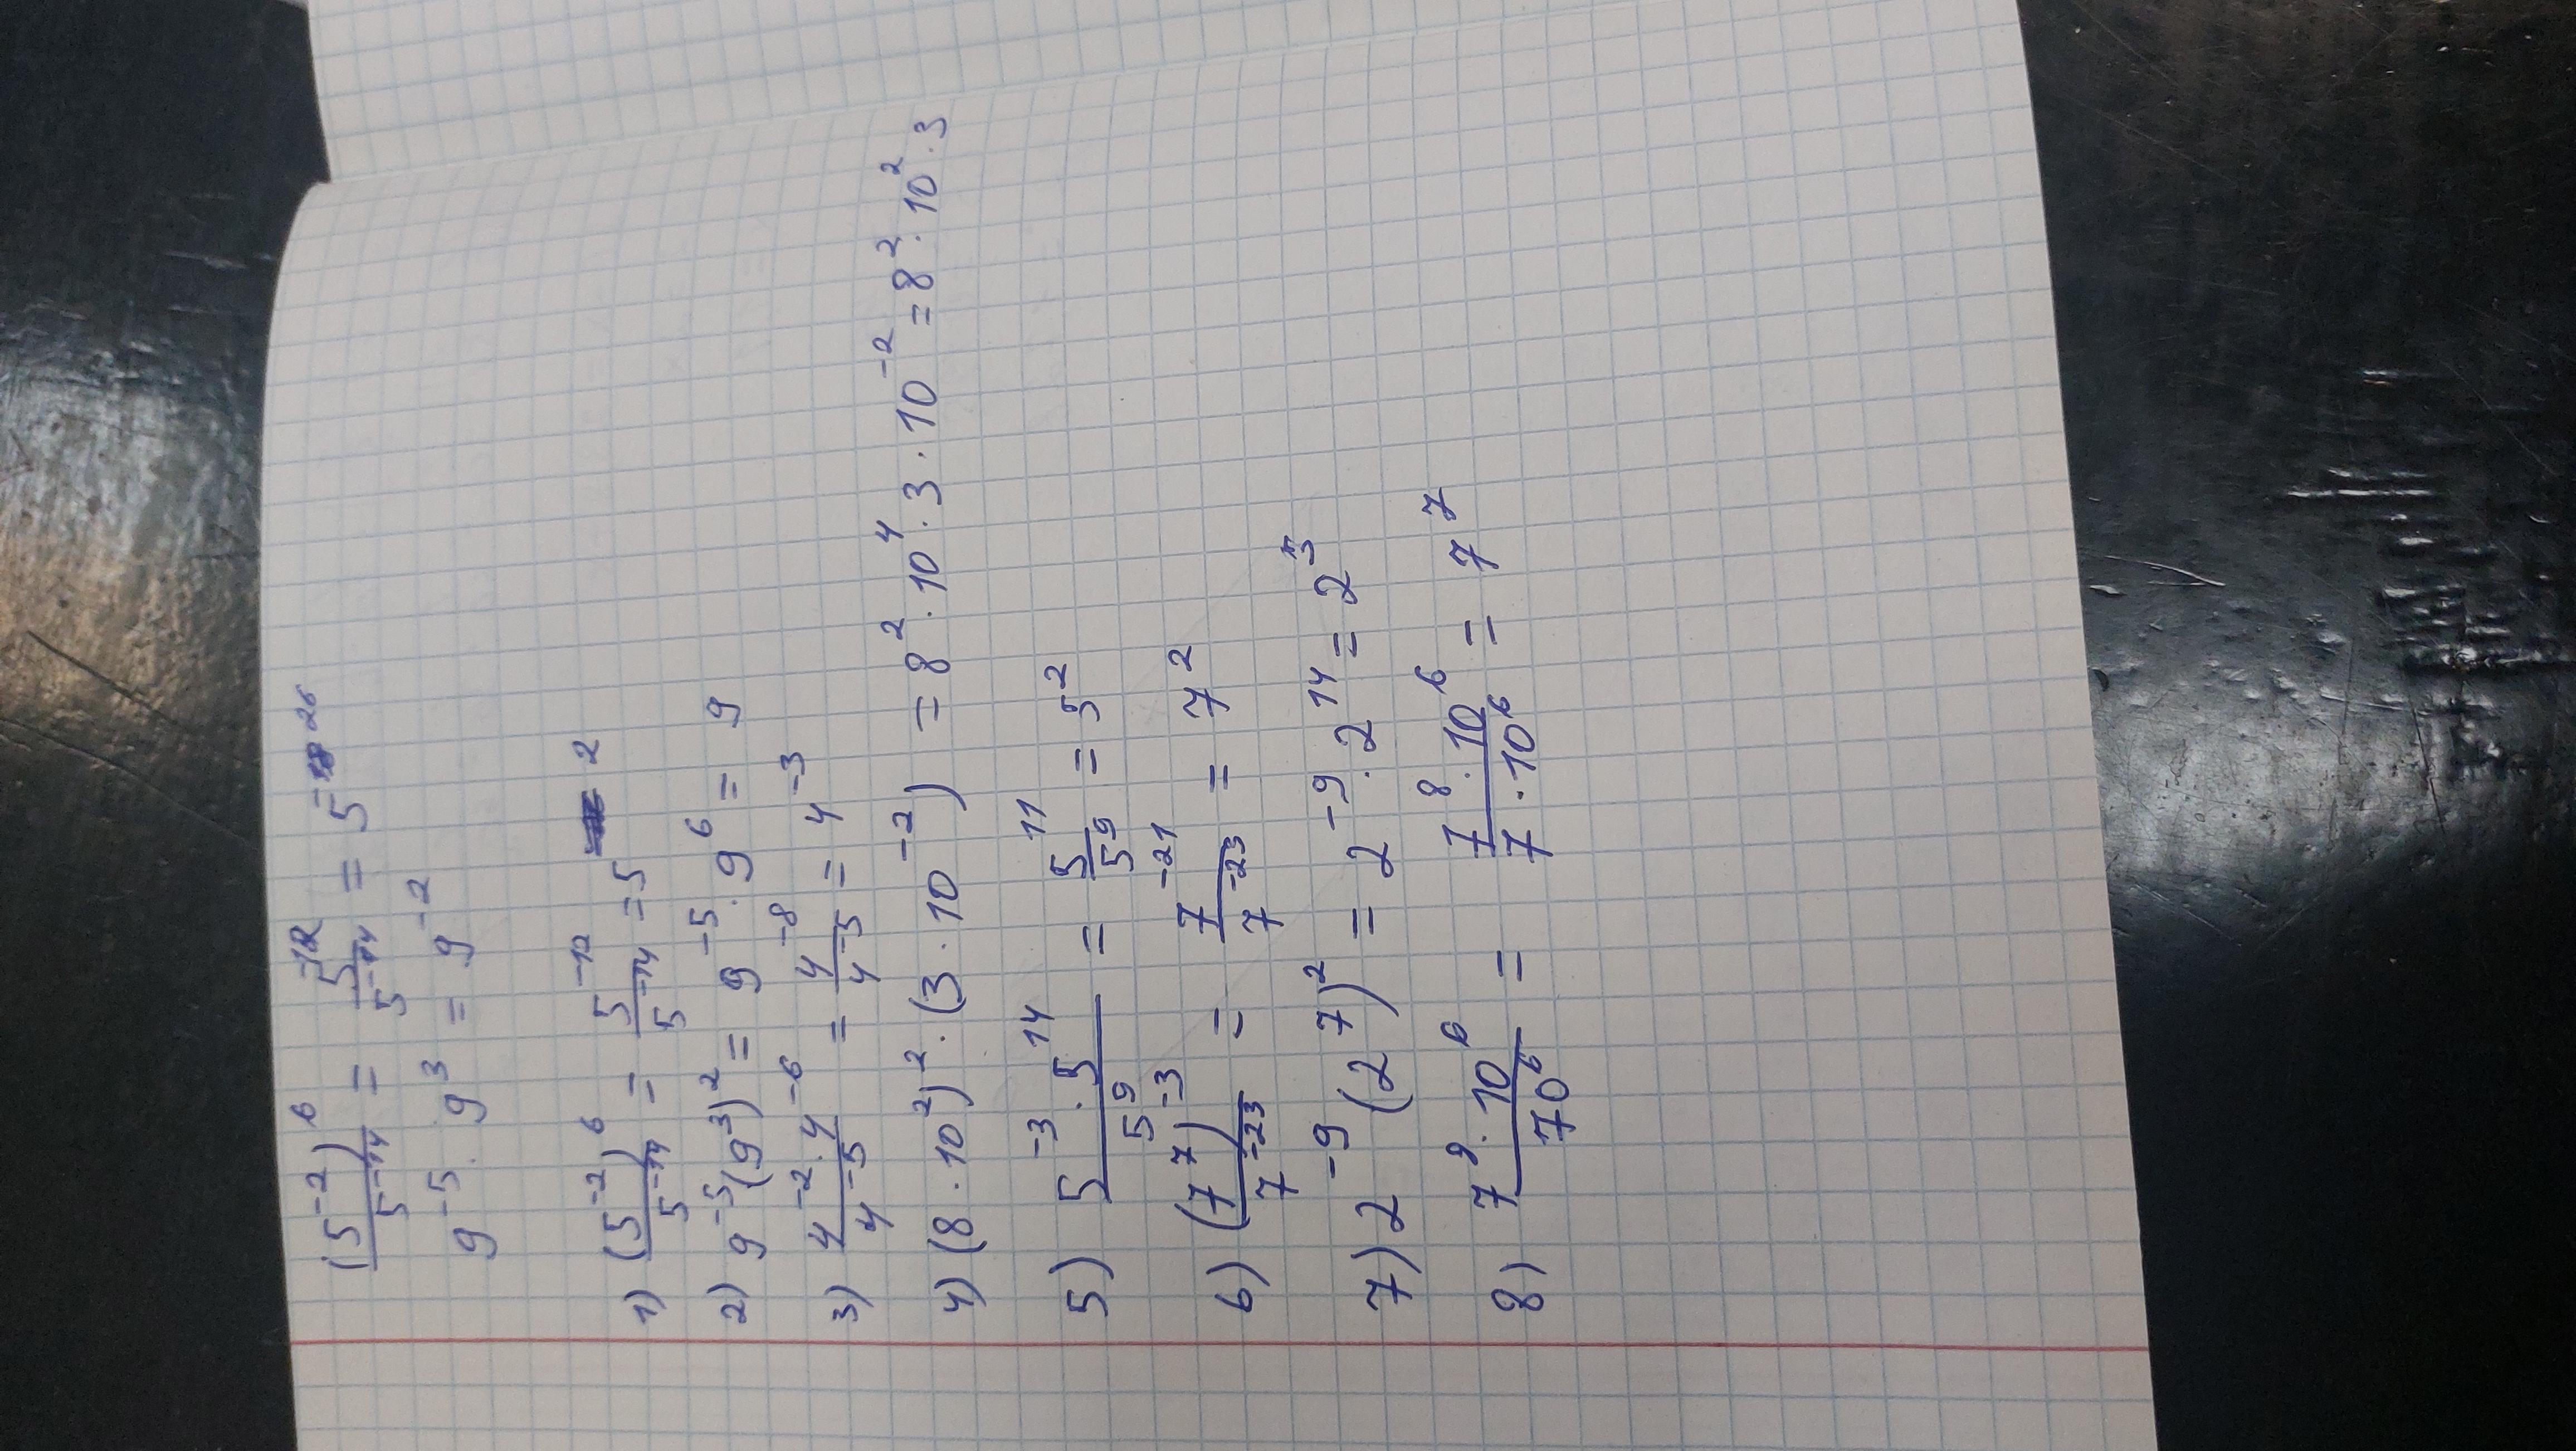 (5⁻²)⁶/5⁻¹⁴ = 5⁻¹²/5⁻¹⁴ = 5⁻²⁶
9⁻⁵ · 9³ = 9⁻²
1) (5⁻²)⁶/5⁻¹⁴ = 5⁻¹²/5⁻¹⁴ = 5²
2) 9⁻⁵(9³)² = 9⁻⁵ · 9⁶ = 9
3) 4⁻² · 4⁻⁶/4⁻⁵ = 4⁻⁸/4⁻⁵ = 4⁻³
4) (8 · 10²)² · (3 · 10⁻²) = 8² · 10⁴ · 3 · 10⁻² = 8² · 10² · 3
5) 5⁻³ · 5¹⁴/5⁹ = 5¹¹/5⁹ = 5²
6) (7⁷)⁻³/7⁻²³ = 7⁻²¹/7⁻²³ = 7²
7) 2⁻⁹ (2⁷)² = 2⁻⁹ · 2¹⁴ = 2⁵
8) 7⁸ · 10⁶/70⁶ = 7⁸ · 10⁶/7 · 10⁶ = 7⁷